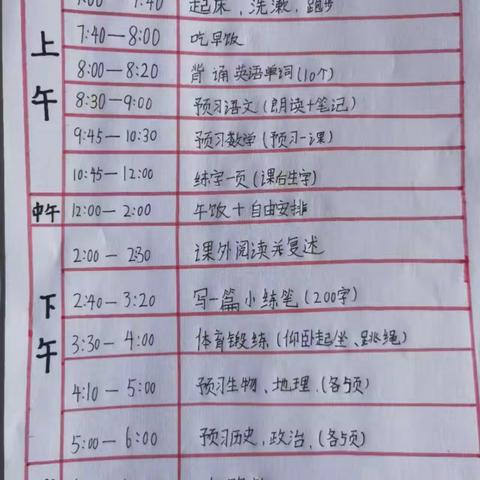 7:40 起床, 洗漱, 跑步
上午
7:40—8:00 吃早饭
8:00—8:20 背诵英语单词(10个)
8:30—9:00 预习语文(朗读+笔记)
9:45—10:30 预习数学(预习一课)
10:45—12:00 练字一页(课后生字)
中午 12:00—2:00 午饭+自由安排
下午
2:00—2:30 课外阅读并复述
2:40—3:20 写一篇小练笔(200字)
3:30—4:00 体育锻炼(仰卧起坐、跳绳)
4:10—5:00 预习生物、地理.(各5页)
5:00—6:00 预习历史,政治,(各5页)